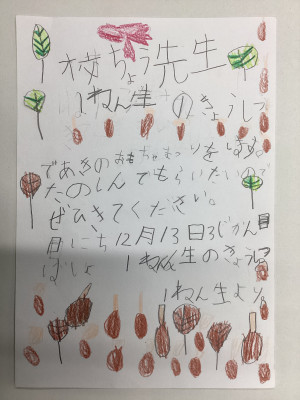 校ちょう先生
1ねん生のきょうしつ
であきのおもちゃまつりをします。
たのしんでもらいたいので
ぜひきてください。
月にち12月13日3じかん目
ばしょ 1ねん生のきょうしつ
1ねん生より。